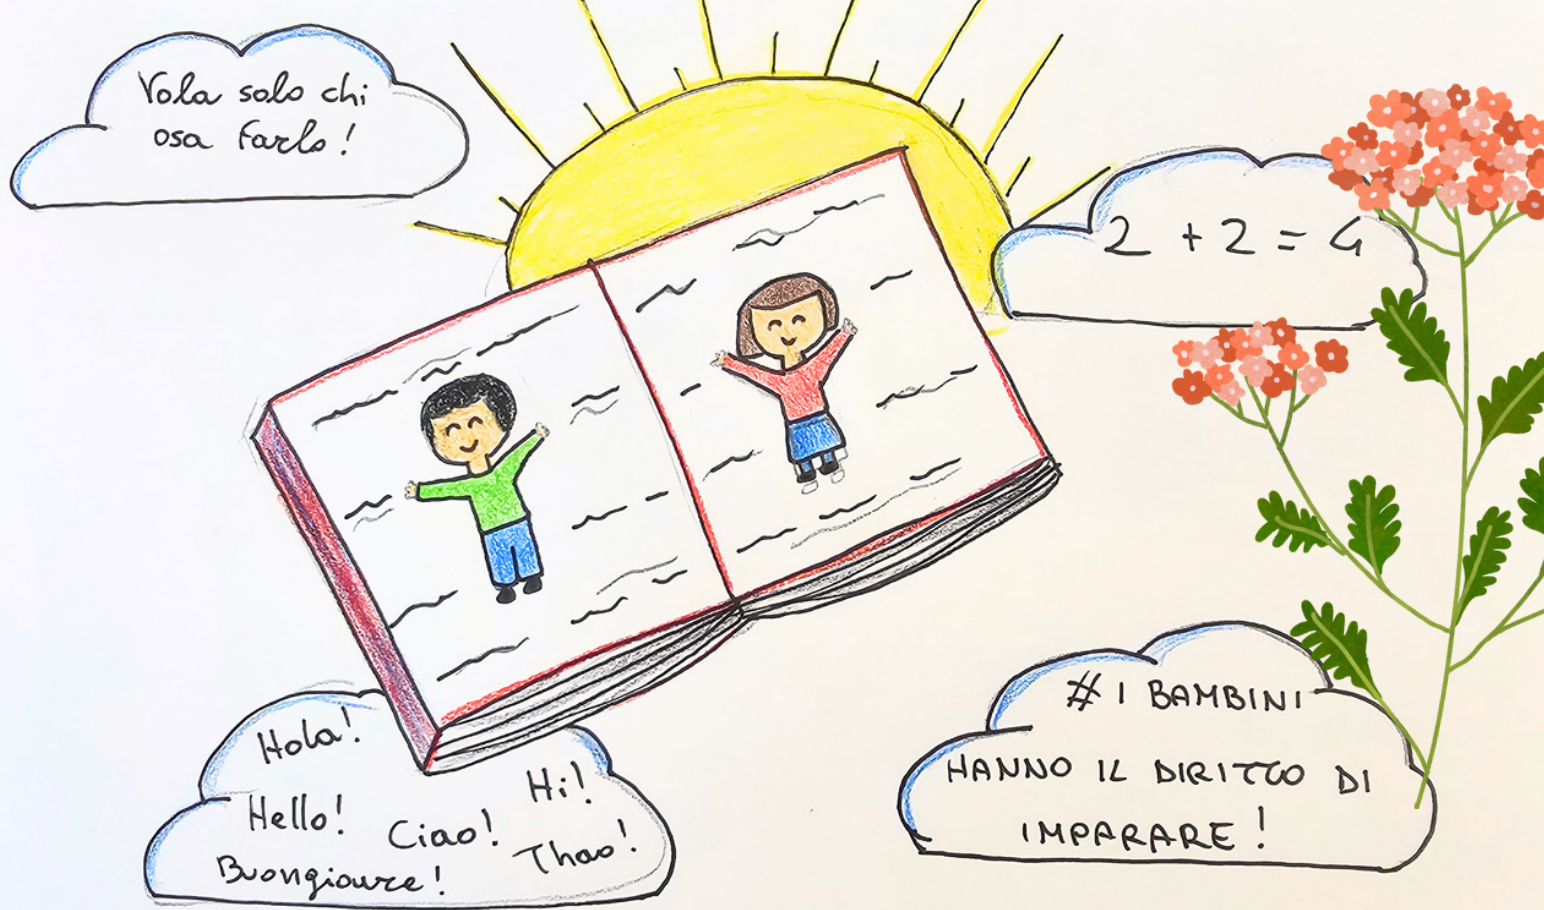 Vola solo chi
osa farlo!
2 + 2 = 4
Hola!
Hello!
Ciao!
Hi!
Buongioure!
Thao!
# I BAMBINI
HANNO IL DIRITTO DI
IMPARARE!